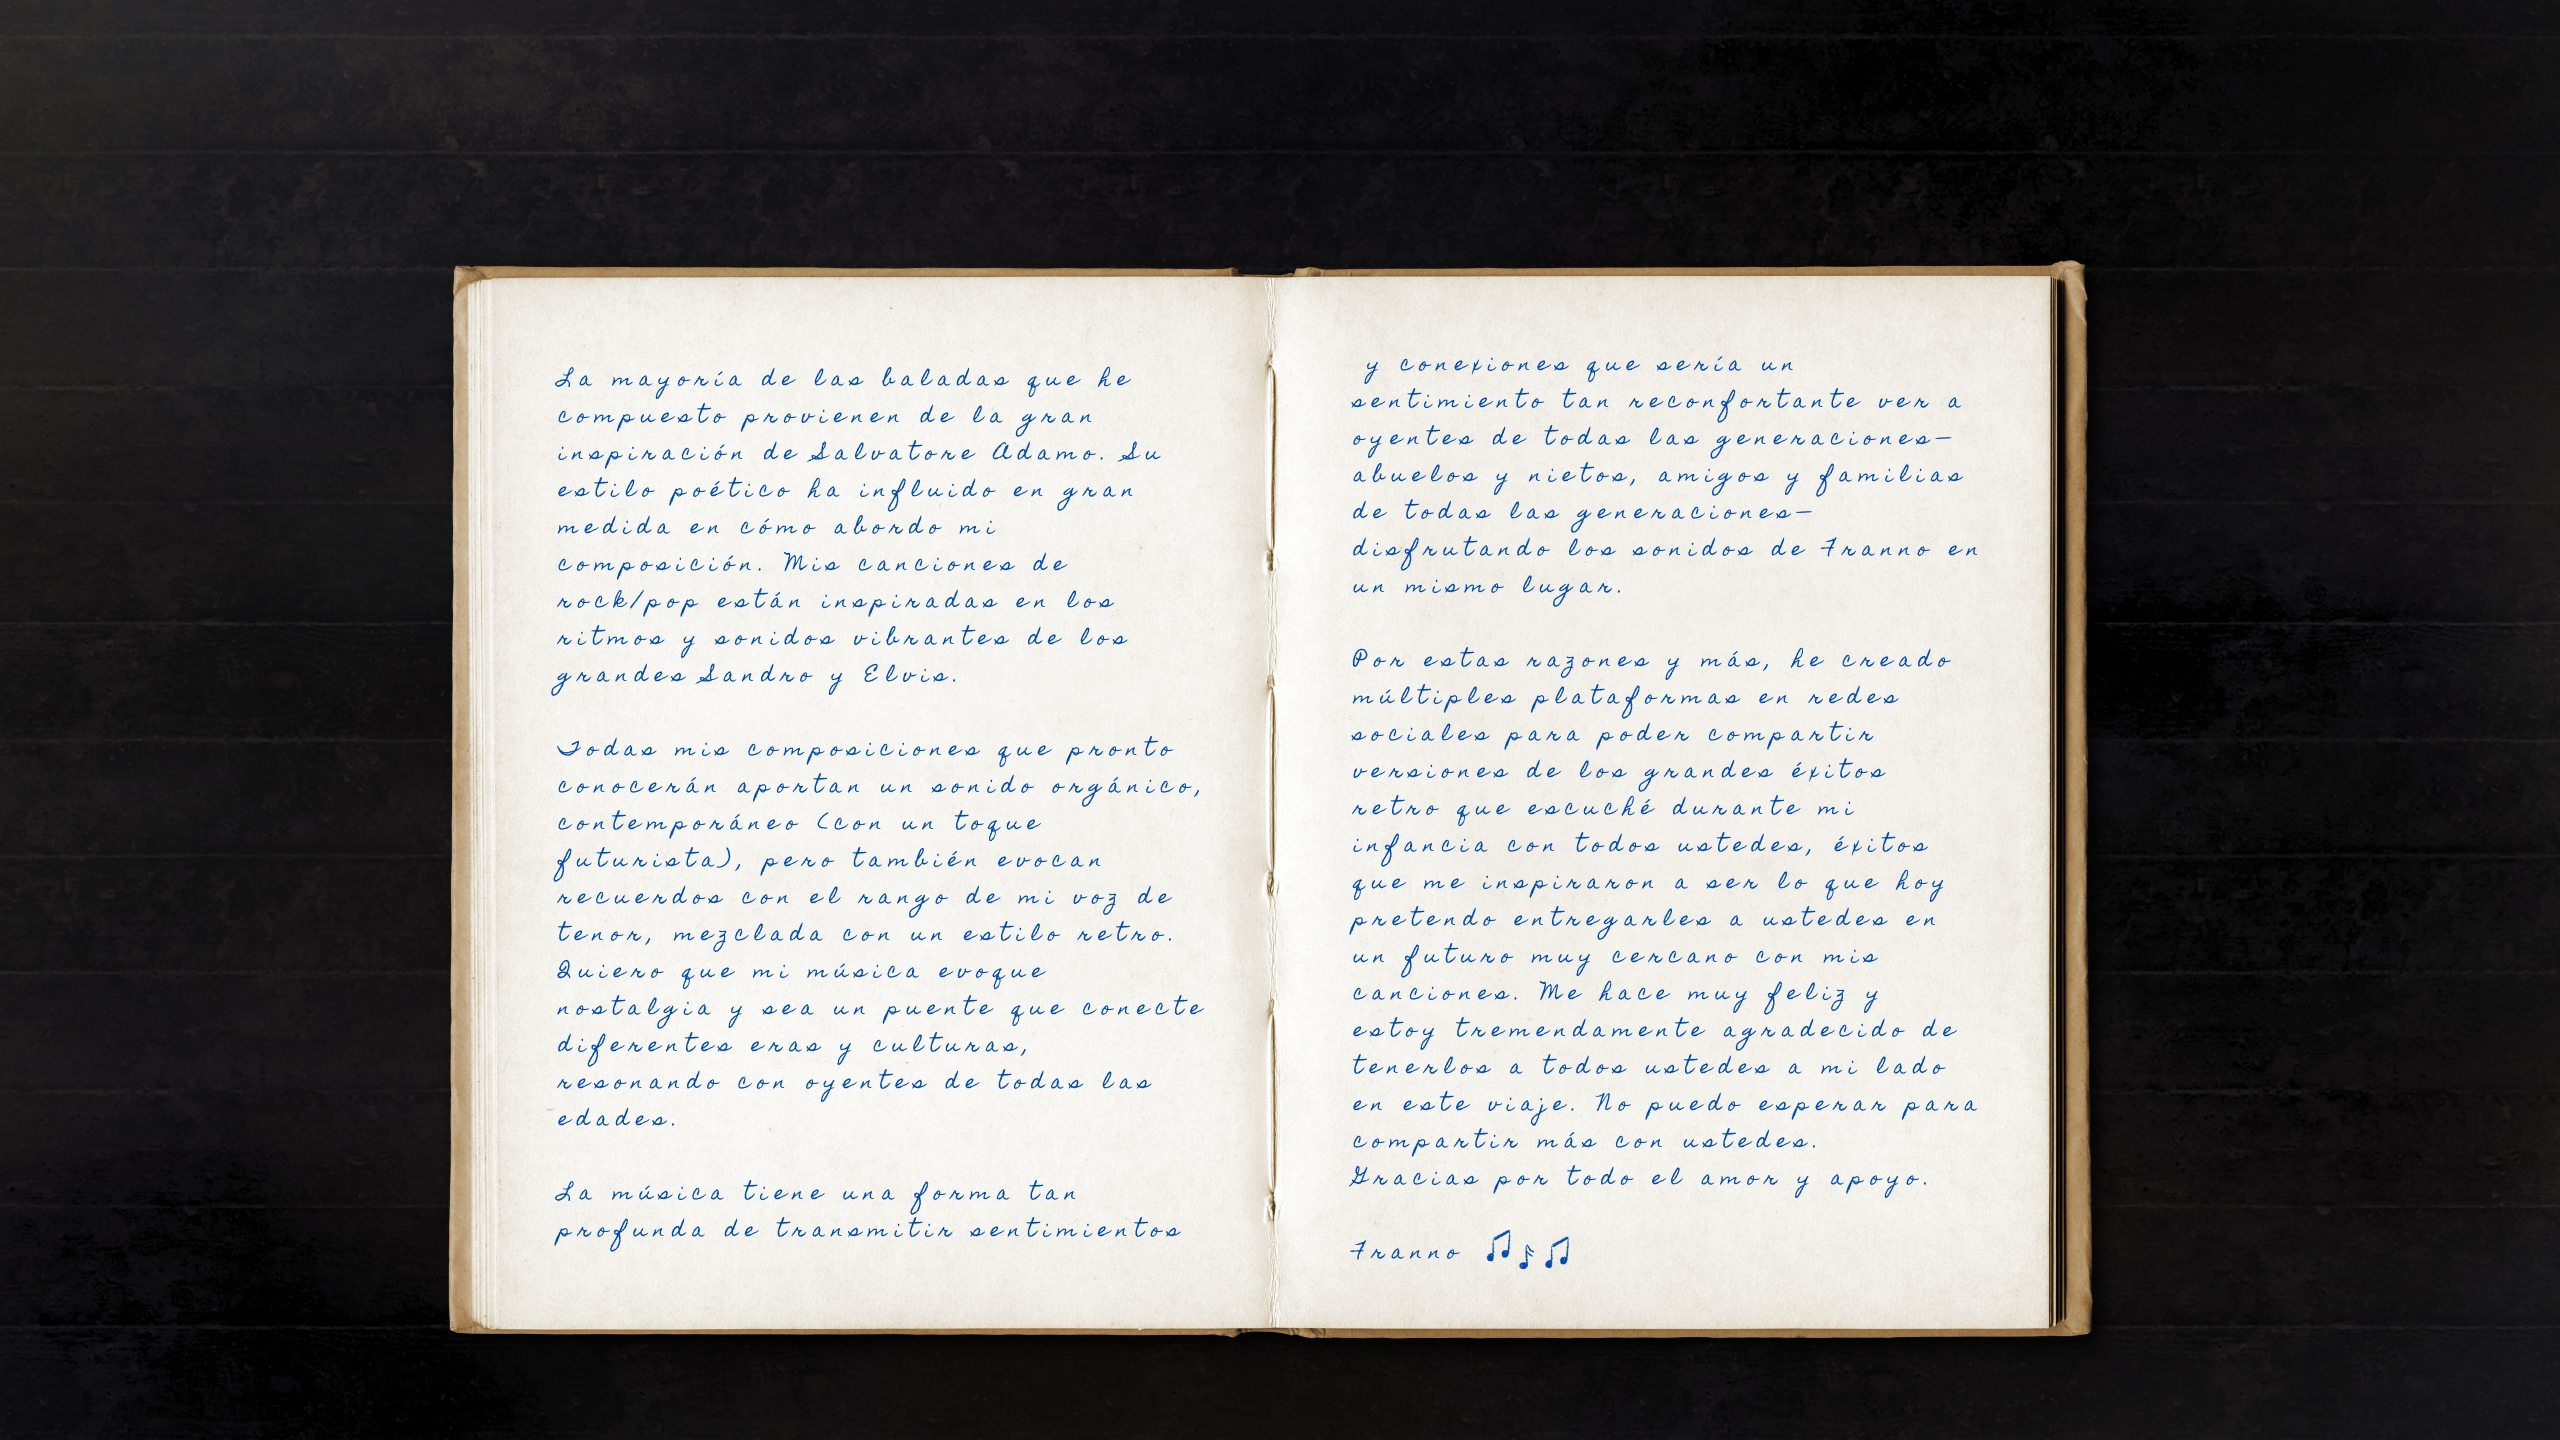 La mayoría de las baladas que he
compuesto provienen de la gran
inspiración de Salvatore Adamo. Su
estilo poético ha influido en gran
medida en cómo abordo mi
composición. Mis canciones de
rock/pop están inspiradas en los
ritmos y sonidos vibrantes de los
grandes Sandro y Elvis.

Todas mis composiciones que pronto
conocerán aportan un sonido orgánico,
contemporáneo (con un toque
futurista), pero también evocan
recuerdos con el rango de mi voz de
tenor, mezclada con un estilo retro.
Quiero que mi música evoque
nostalgia y sea un puente que conecte
diferentes eras y culturas,
resonando con oyentes de todas las
edades.

La música tiene una forma tan
profunda de transmitir sentimientos
y conexiones que sería un
sentimiento tan reconfortante ver a
oyentes de todas las generaciones—
abuelos y nietos, amigos y familias
de todas las generaciones—
disfrutando los sonidos de Franno en
un mismo lugar.

Por estas razones y más, he creado
múltiples plataformas en redes
sociales para poder compartir
versiones de los grandes éxitos
retro que escuché durante mi
infancia con todos ustedes, éxitos
que me inspiraron a ser lo que hoy
pretendo entregarles a ustedes en
un futuro muy cercano con mis
canciones. Me hace muy feliz y
estoy tremendamente agradecido de
tenerlos a todos ustedes a mi lado
en este viaje. No puedo esperar para
compartir más con ustedes.
Gracias por todo el amor y apoyo.

Franno 🎵